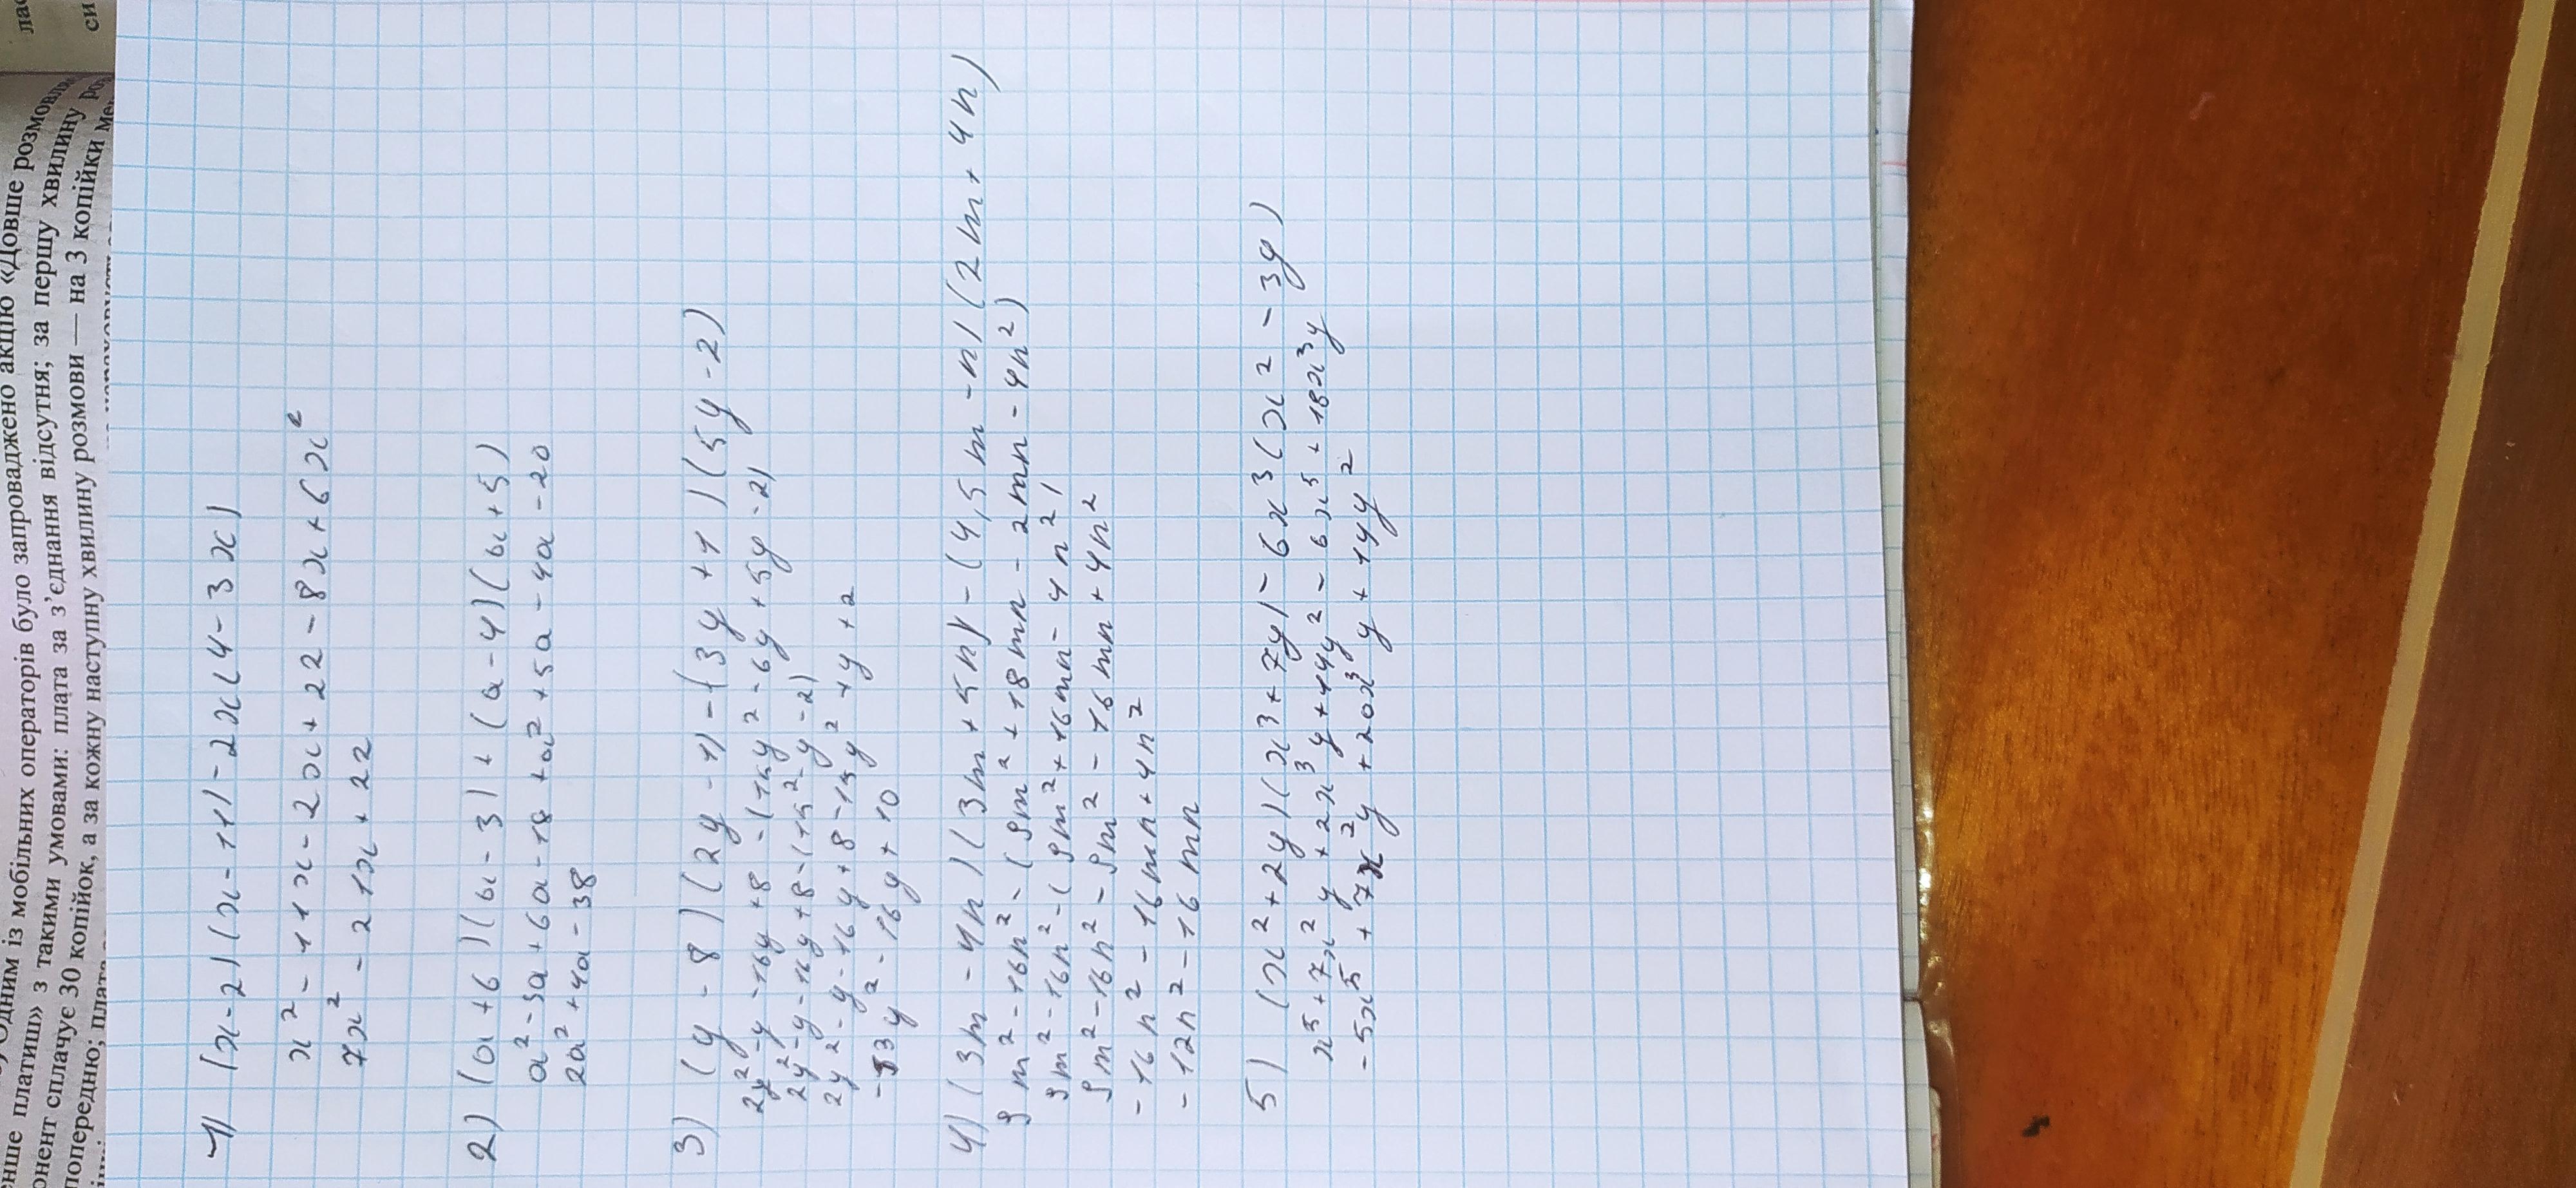 лас
си
) Одним із мобільних операторів було запроваджено акцію «Довше розмовл
енше платиш» з такими умовами: плата за з'єднання відсутня; за першу хвилину
онент сплачує 30 копійок, а за кожну наступну хвилину розмови — на 3 копійки
попередню; плата
1) (x-2)(x-11)-2x(4-3x)
x²-11x-2x+22-8x+6x²
7x²-21x+22
2) (a+6)(a-3)+(a-4)(a+5)
a²-3a+6a-18+a²+5a-4a-20
2a²+4a-38
3) (y-8)(2y-1)-(3y+1)(5y-2)
2y²-y-16y+8-(15y²-6y+5y-2)
2y²-y-16y+8-(15²-y-2)
2y²-y-16y+8-15y²+y+2
-13y²-16y+10
4) (3m-4n)(3m+5n)-(4,5m-n)(2m+4n)
9m²-16n²-(9m²+18mn-2mn-4n²)
9m²-16n²-(9m²+16mn-4n²)
9m²-16n²-9m²-16mn+4n²
-16n²-16mn+4n²
-12n²-16mn
5) (x²+2y)(x³+7y)-6x³(x²-3y)
x⁵+7x²y+2x³y+14y²-6x⁵+18x³y
-5x⁵+7x²y+20x³y+14y²